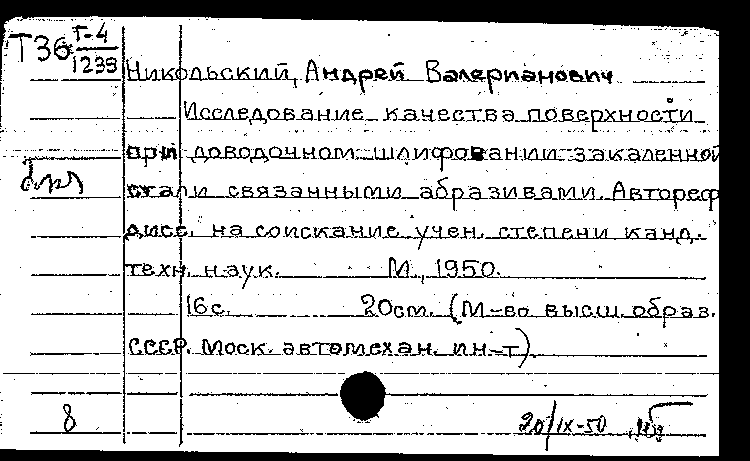 Т36 Т-4
1233
Никольский, Андрей Валерианович
Исследование качества поверхности
при доводочном шлифовании закаленной
стали связанными абразивами. Автореф
дисс. на соискание учен. степени канд.
техн. наук. М., 1950.
16с. 20см. (М-во высш. образ.
СССР. Моск. автомехан. ин-т).
8 20/IX-50